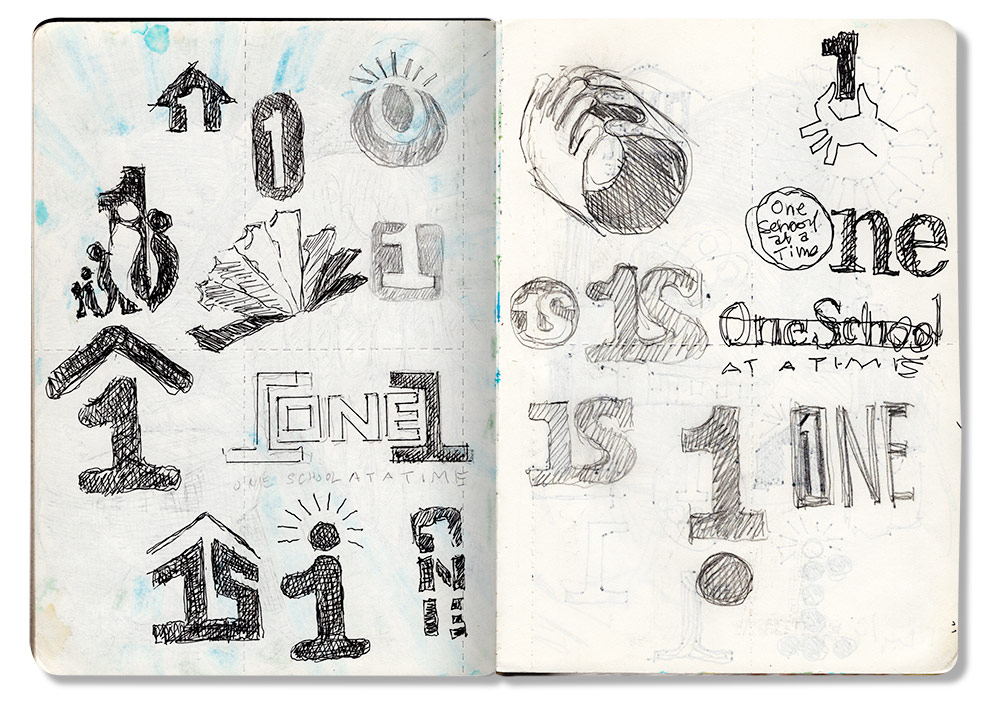 1
1
1
1
1
ONE
ONE SCHOOL AT A TIME
1S
i
1
One
School
at a
Time
ne
1S
1S
One School
AT A TIME
1S
1
ONE